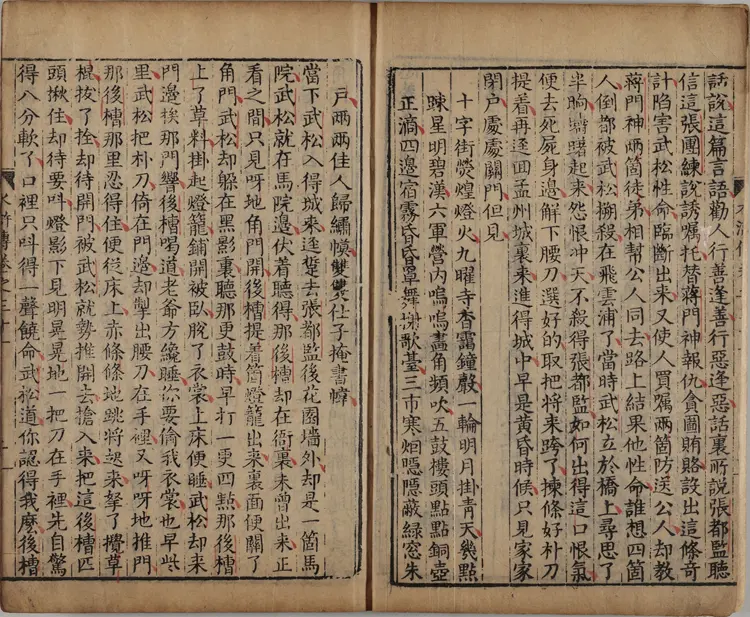 話說這篇言語勸人行善逢善行惡逢惡話裏所說張都監聽
信這張團練說誘嘱托替蔣門神報仇貪圖賄賂設出這條奇
計陷害武松性命臨斷出來又使人買嘱兩箇防送公人却教
蔣門神兩箇徒弟相幫公人同去路上結果他性命誰想四箇
人倒都被武松搠殺在飛雲浦了當時武松立於橋上尋思了
半晌躊躇起來怨恨冲天不殺得張都監如何出得這口恨氣
便去死屍身邊解下腰刀選好的取把將來跨了揀條好朴刀
提着再逕回孟州城裏來進得城中早是黃昏時候只見家家
閉户處處關門但見
十字街熒煌燈火九曜寺香靄鐘聲一輪明月掛青天幾點
踈星明碧漢六軍營內嗚嗚畫角頻吹五鼓樓頭點點銅壺
正滴四邊宿霧昏昏罩舞榭歌臺三市寒烟隱隱蔽綠窓朱
户兩兩佳人歸繡幙雙雙仕子掩書幃
當下武松入得城來逕踅去張都監後花園墻外却是一箇馬
院武松就在馬院邊伏着聽得那後槽却在衙裏未曾出來正
看之間只見呀地角門開後槽提着箇燈籠出來裏面便關了
角門武松却躲在黑影裏聽那更鼓時早打一更四點那後槽
上了草料掛起燈籠鋪開被卧脫了衣裳上床便睡武松却來
門邊挨那門響後槽喝道老爺方纔睡你要偷我衣裳也早些
里武松把朴刀倚在門邊却掣出腰刀在手裡又呀呀地推門
那後槽那里忍得住便從床上赤條條地跳將起來拏了攪草
棍拔了拴却待開門被武松就勢推開去搶入來把這後槽匹
頭揪住却待要呌燈影下見明晃晃地一把刀在手裡先自驚
得八分軟了口裡只呌得一聲饒命武松道你認得我麽後槽
水滸傳卷之三十一